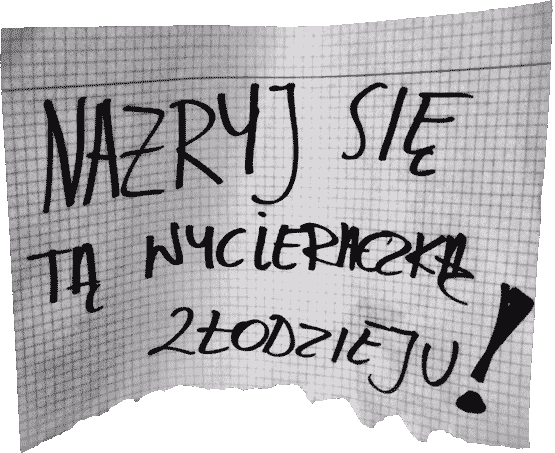 NAŻRYJ SIĘ
TĄ WYCIERACZKĄ
ZŁODZIEJU!